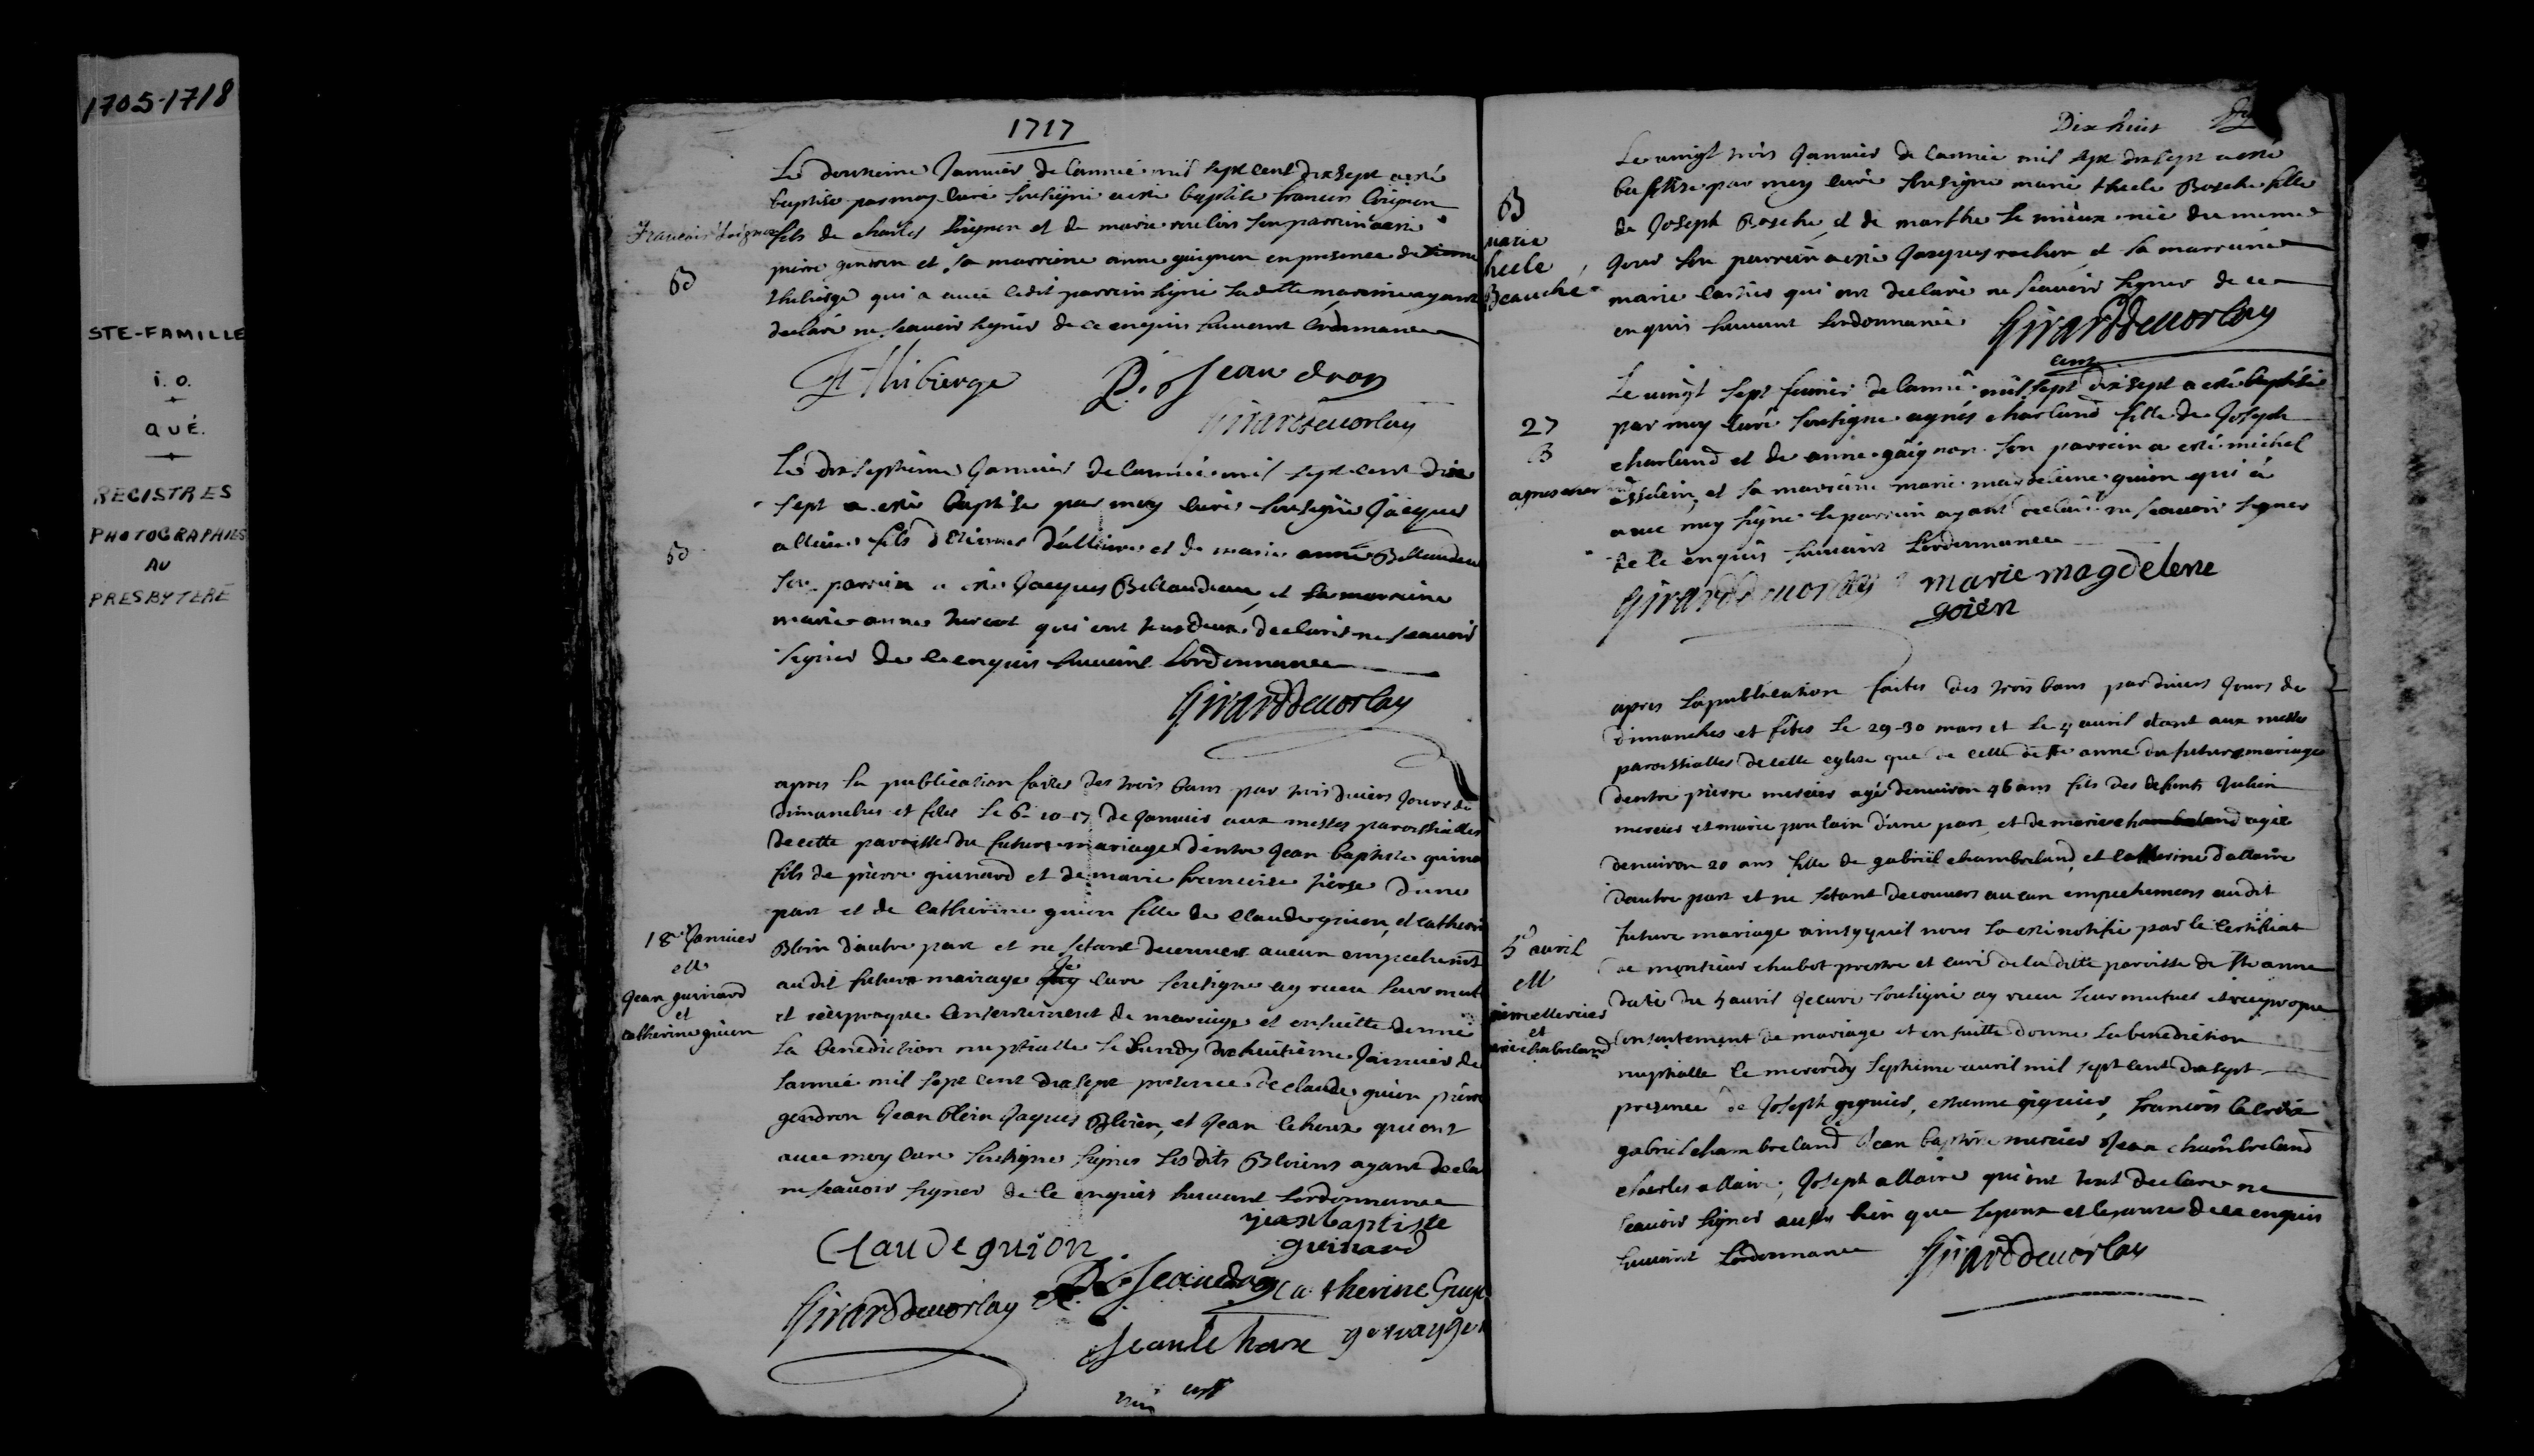 1705-1718
STE-FAMILLE
i. o.
QUÉ.
REGISTRES
PHOTOGRAPHIÉS
AU
PRESBYTERE
1717
Le douzieme Janvier de lannee mil sept cent dix sept a esté
baptise par moy curé soussigné a esté baptise francois
fils de charles et de marie son parrain a esté
pierre gendron et sa marraine anne gaignon en presence de
thibierge qui a avec ledit parrain signé laditte maraine ayant
declaré ne scavoir signer de ce enquis suivant lordonnance
B
Thibierge P. Jeandron
Girarddeuorlay
Le dix septieme Janvier de lannee mil sept cent dix
sept a esté baptise par moy curé soussigné Jacque
allaire fils d'etienne d'allaire et de marie anne Billaudeau
son parrain a esté Jacques Billaudeau et sa marraine
marie anne turcot qui ont tous deux declaré ne scavoir
signer de ce enquis suivant lordonnance
Girarddeuorlay
apres la publication faite des trois bans par trois divers jours de
dimanches et fetes le 6-10-17 de Janvier aux messes paroissialles
de cette paroisse du futur mariage d'entre Jean baptiste
fils de pierre guinard et de marie francoise dune
part et de catherine guion fille de claude guion et
Bloin dautre part et ne setant decouvert aucun empechemt
audit futur mariage Je curé soussigné ay receu leur
et reciproque consentement de mariage et ensuitte donné
la benediction nuptialle le lundy dix huitieme Janvier de
lannee mil sept cent dix sept presence de claude guion pierre
gendron Jean bloin Jaques Bloin, et Jean lehoux qui ont
avec moy curé soussigné signés lesdits Bloins ayant
ne scavoir signer de ce enquis suivant lordonnance
18 Janvier
M
Jean guinard
et
catherine guion
Claude guion
jean baptiste
guinard
Girarddeuorlay P. Jeandron catherine
Jean le houx
Dix huit
Le vingt trois Janvier de lannee mil sept dix sept a esté
baptisée par moy curé soussigné marie thecle Bosche fille
de Joseph Bosche et de marthe le mieux née du mesme
jour son parrain a esté Jacques rochon et sa marraine
marie qui ont declaré ne scavoir signer de ce
enquis suivant lordonnance Girarddeuorlay
B
marie
thecle
Beauché
cent
Le vingt sept fevrier de lannee mil sept dix sept a esté baptisée
par moy curé soussigné agnés charland fille de Joseph
charland et de anne gaignon son parrain a esté michel
asselein, et sa marraine marie madeleine guion qui a
avec moy signé le parrain ayant declaré ne scavoir signer
de ce enquis suivant lordonnance
27
B
Girarddeuorlay marie magdelene
goien
apres la publication faites des trois bans par divers jours de
dimanches et fetes le 29-30 mars et le 4 avril tant aux messes
paroissialles de cette eglise que de celle de ste anne du futur mariage
dentre pierre mercier agé denviron 46 ans fils des defunts Julien
mercier et marie poulain dune part, et de marie chambreland agée
denviron 20 ans fille de gabriel chambreland et catherine dallaire
dautre part et ne setant decouvert aucun empechement audit
future mariage ainsy quil nous la esté notifié par le certificat
de monsieur chabot prestre et curé de laditte paroisse de Ste anne
daté du 5 avril Je curé soussigné ay receu leur mutuel et reciproque
consentement de mariage et ensuitte donne la benediction
nuptialle le mercredy septieme avril mil sept cent dix sept
presence de Joseph giguier, estienne giguier, francois lacroix
gabriel chambreland Jean baptiste mercier Jean chambreland
charles allaire, Joseph allaire qui ont tout declare ne
scavoir signer aussy bien que lepoux et lepouse de ce enquis
suivant lordonnance Girarddeuorlay
5 avril
M
et